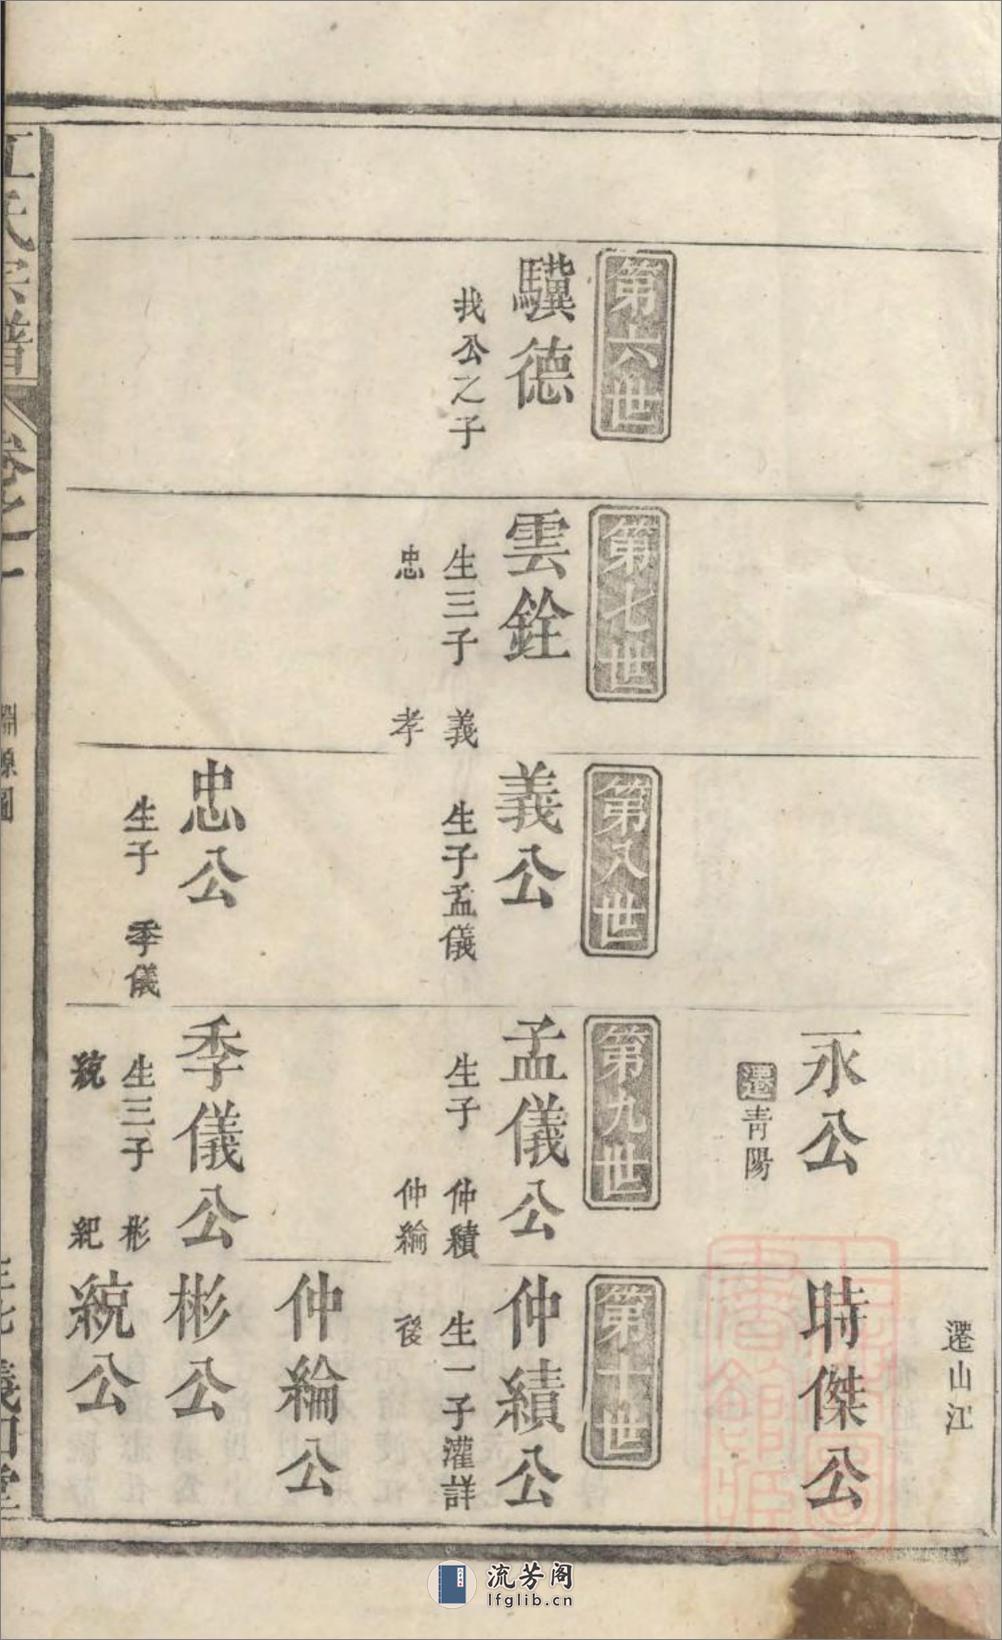 第六世
驥德
我公之子
第七世
雲銓
生三子 義
忠 孝
第八世
義公
生子孟儀
忠公
生子 季儀
永公
遷青陽
第九世
孟儀公
生子 仲績
仲綸
季儀公
生三子 彬
統 紀
遷山江
時傑公
第十世
仲績公
生一子灌詳
後
仲綸公
彬公
統公
江氏宗譜
卷之一
淵源圖
流芳阁
lfglib.cn